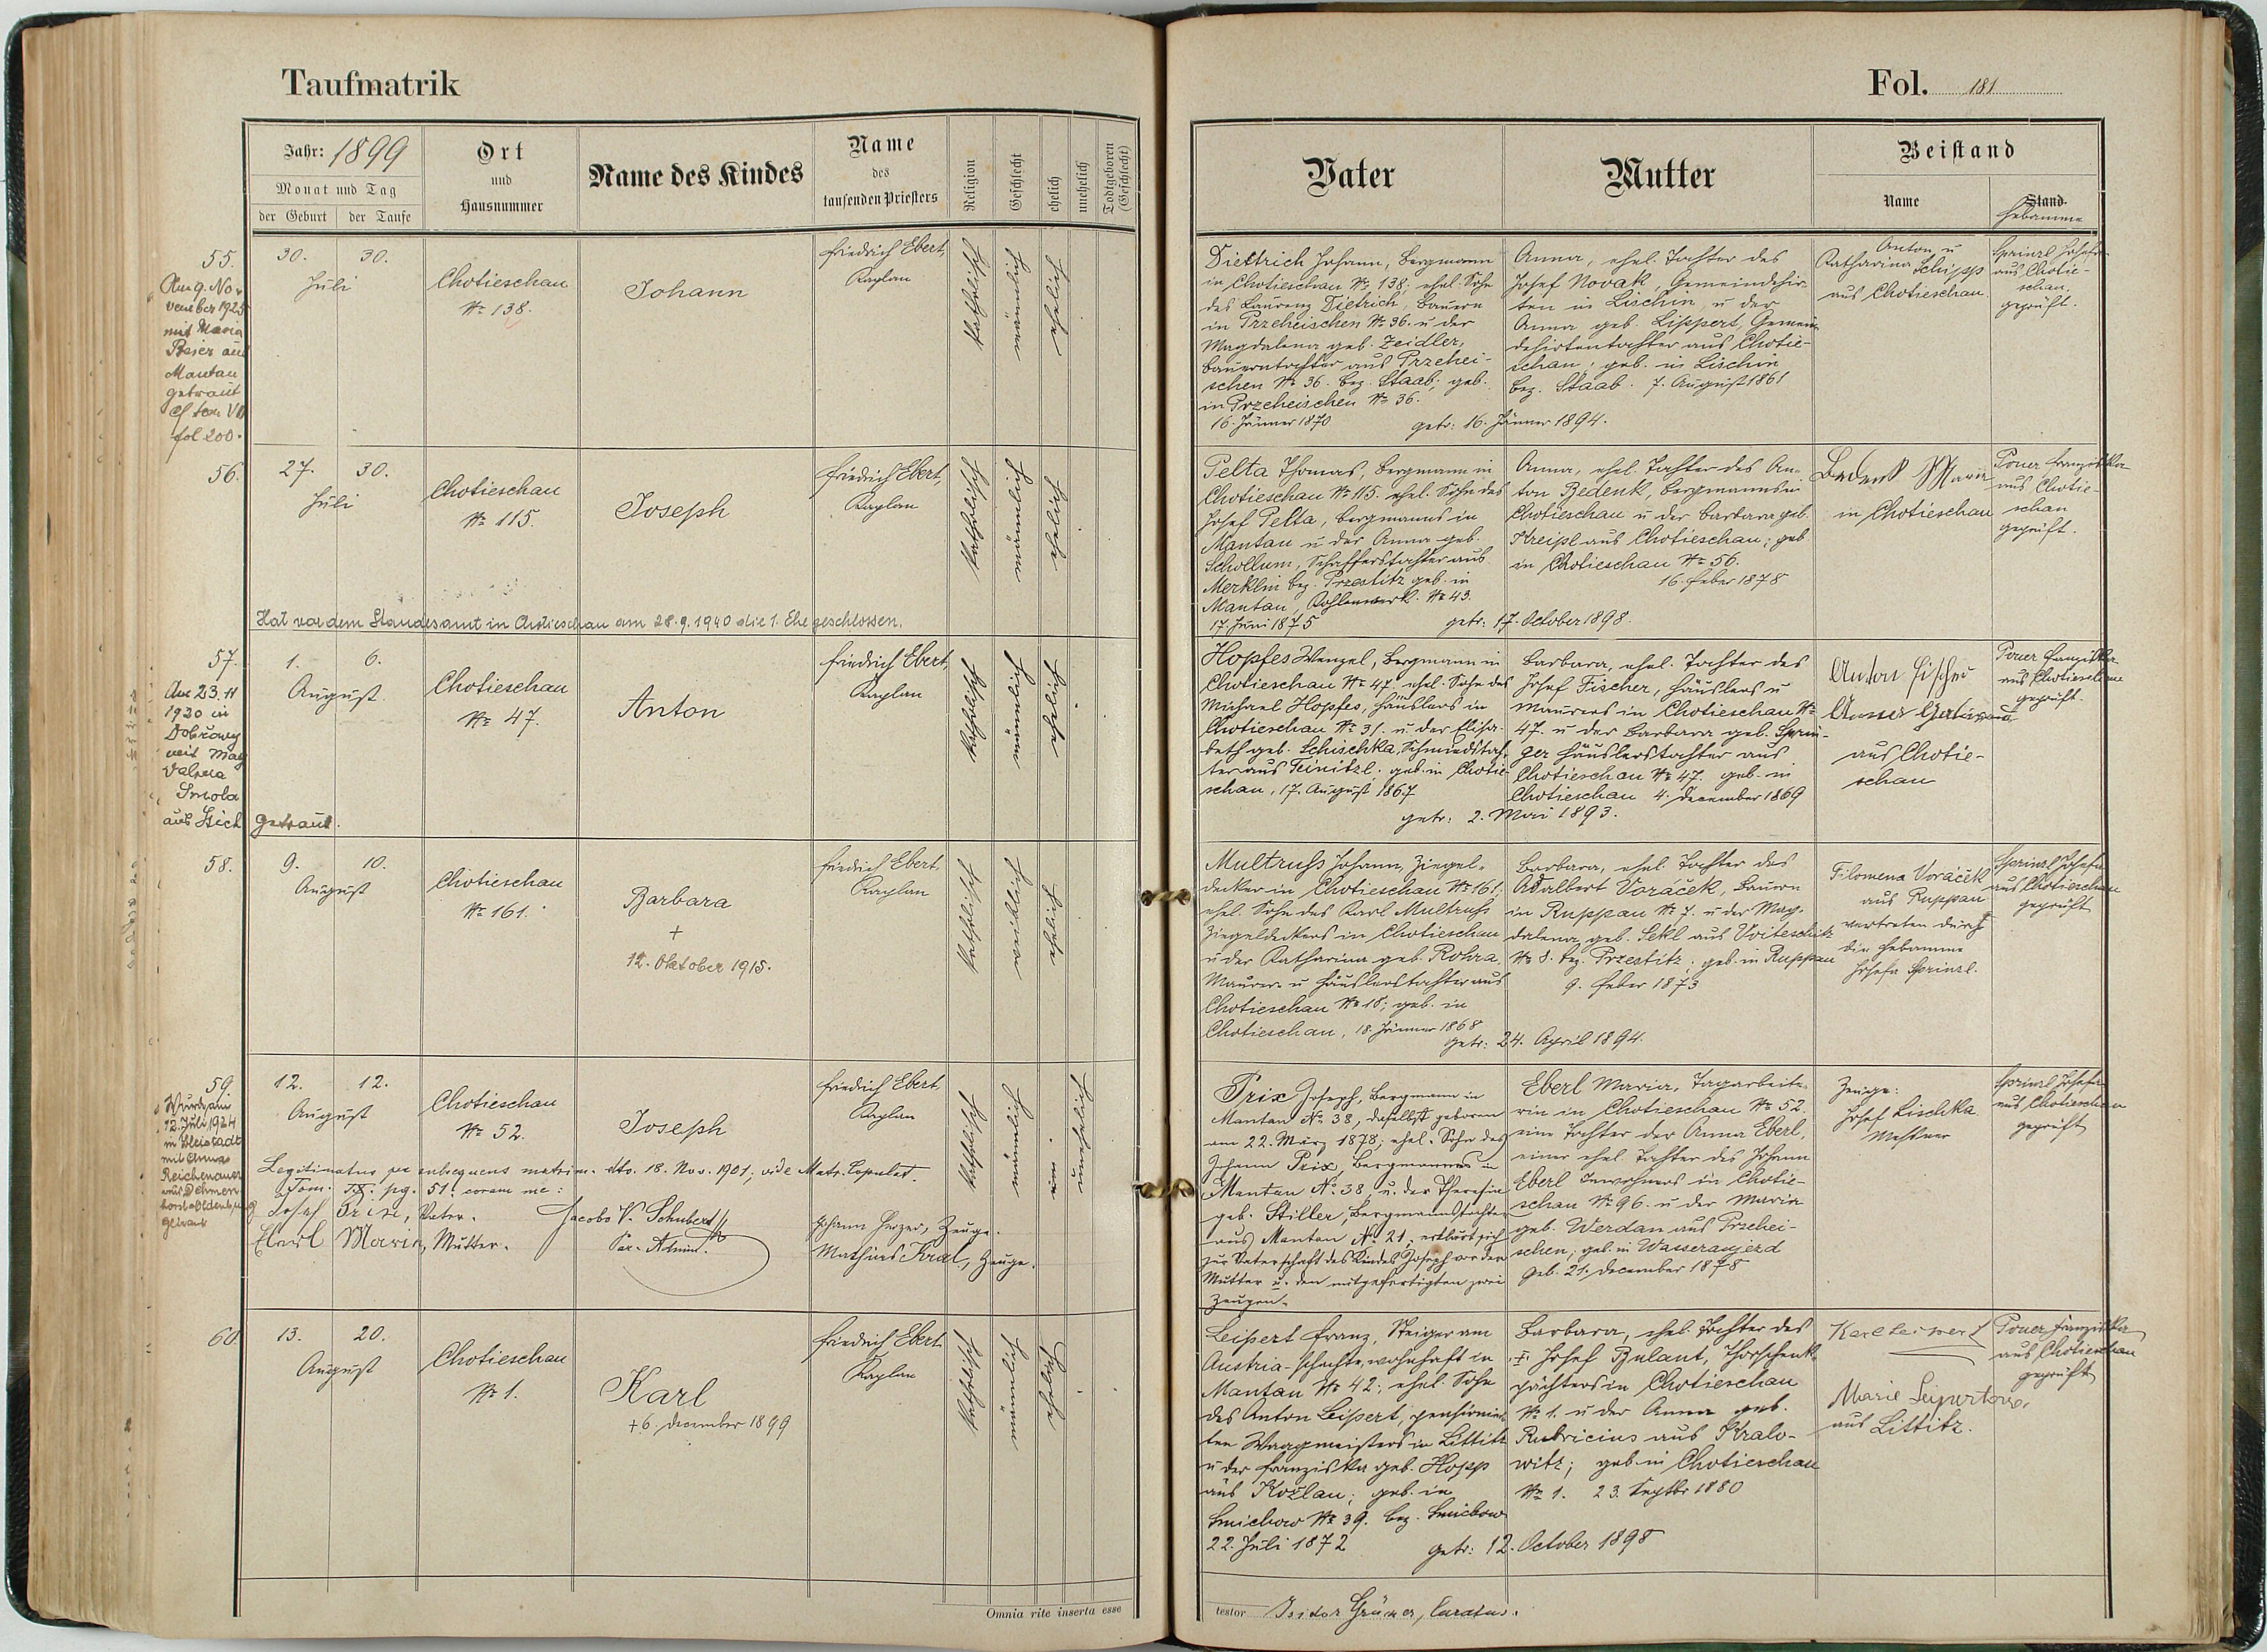 Taufmatrik
Jahr: 1899
Monat und Tag
der Geburt
der Taufe
Ort
und
Hausnummer
Name des Kindes
Name
des
taufenden Priesters
Religion
Geschlecht
ehelich
unehelich
Todtgeboren
(Geschlecht)
55.
Am 9. No-
vember 1925
mit Maria
Beier aus
Mantau
getraut
fol 200.
30.
30.
Juli
Chotieschau
№ 138.
Johann
Friedrich Ebert,
Kaplan
katholisch
männlich
ehelich
56.
27.
30.
Juli
Chotieschau
№ 115.
Joseph
Friedrich Ebert,
Kaplan
katholisch
männlich
ehelich
Hat vor dem Standesamt in Chotieschau am 28.9.1940 die 1. Ehe geschlossen.
57.
Am 23. 11
1930 in
Dobřany
mit Mag
Smola
aus Stich getraut.
1.
6.
August
Chotieschau
№ 47.
Anton
Friedrich Ebert,
Kaplan
katholisch
männlich
ehelich
58.
9.
10.
August
Chotieschau
№ 161.
Barbara
+
12. Oktober 1915.
Friedrich Ebert,
Kaplan
katholisch
weiblich
ehelich
59
12. Juli 1924
in Bleistadt
mit Anna
Reichenauer
getraut
12.
12.
August
Chotieschau
№ 52.
Joseph
Friedrich Ebert
Kaplan
katholisch
männlich
un
unehelich
Legitimatus per subsequens matrim. dto. 18. Nov. 1901; vide Matr. Copulat.
Tom. pg. 51. coram me:
Josef Prix, Vater.
Jacobo V. Schubert
Par. Admin.
Eberl Maria, Mutter.
Zeuge.
Mathias Kral, Zeuge.
60.
13.
20.
August
Chotieschau
№ 1.
Karl
+ 6. December 1899
Friedrich Ebert
Kaplan
katholisch
männlich
ehelich
Omnia rite inserta esse
Fol. 181
Vater
Mutter
Beistand
Name
Stand
Hebamme
Diettrich Johann, Bergmann
in Chotieschau № 138; ehel. Sohn
des Laurenz Dietrich, Bauern
in Przeheischen № 36. u der
Magdalena geb. Zeidler,
Bauerntochter aus Przehei-
schen № 36. Bez. Staab; geb.
in Przeheischen № 36.
16. Jänner 1870
Anna, ehel. Tochter des
Josef Novak, Gemeindehir-
ten in Lischin u der
Anna geb. Lippert, Gemein-
dehirtentochter aus Chotie-
schau; geb. in Lischin
Bez. Staab. 7. August 1861
getr: 16. Jänner 1894.
Anton u
Katharina Schipp
aus Chotieschau
Sprinzl Josefa
aus Chotie-
schau.
geprüft.
Pelta Thomas, Bergmann in
Chotieschau № 115. ehel. Sohn des
Josef Pelta, Bergmanns in
Mantau u der Anna geb.
Schollum, Schafferstochter aus
Merklin Bez. Przestitz geb. in
Mantau, Kohlenwerk. № 43.
17. Juni 1875
Anna, ehel. Tochter des An-
ton Bedenk, Bergmanns in
Chotieschau u der Barbara geb.
Kreipl aus Chotieschau; geb
in Chotieschau № 56.
16. Feber 1878
getr: 17. October 1898.
Bedenk Maria
in Chotieschau
Poner Franziska
aus Chotie-
schau
geprüft.
Hopfes Wenzel, Bergmann in
Chotieschau № 47 ehel. Sohn des
Michael Hopfes, Häuslers in
Chotieschau № 31. u der Elisa-
beth geb. Schischka, Schmiedstoch-
ter aus Teinitzl; geb. in Chotie-
schau, 17. August 1867
Barbara, ehel. Tochter des
Josef Fischer, Häuslers u
Maurers in Chotieschau №
47. u der Barbara geb. Sprin-
ger Häuslerstochter aus
Chotieschau № 47. geb. in
Chotieschau 4. December 1869
getr: 2. Mai 1893.
Anton Fischer
Anna
aus Chotie-
schau
Poner Franziska
aus Chotieschau
geprüft.
Multruss Johann, Ziegel-
decker in Chotieschau № 161.
ehel. Sohn des Karl Multruss
Ziegeldeckers in Chotieschau
u der Katharina geb. Rohra,
Maurer- u Häuslerstochter aus
Chotieschau № 18; geb. in
Chotieschau, 18. Jänner 1868
Barbara, ehel. Tochter des
Adalbert Voráček, Bauern
in Ruppau № 7. u der Mag-
dalena geb. Sekl aus Voiteschitz
№ 8. Bez. Przestitz; geb. in Ruppau
9. Feber 1873
getr: 24. April 1894.
Filomena Voráček
aus Ruppau
vertreten durch
die Hebamme
Josefa Sprinzl.
Sprinzl Josefa
aus Chotieschau
geprüft
Prix Joseph, Bergmann in
Mantau № 38, daselbst geboren
am 22. März 1878; ehel. Sohn des
Johann Prix, Bergmannes in
Mantau № 38, u. der Theresia
geb. Stiller, Bergmannstochter
aus Mantau № 21, erklärt sich
zur Vaterschaft des Kindes Joseph vor der
Mutter u. den mitgefertigten zwei
Zeugen.
Eberl Maria, Tagarbeite-
rin in Chotieschau № 52.
eine Tochter der Anna Eberl,
einer ehel. Tochter des Johann
Eberl Bewohners in Chotie-
schau № 96. u der Maria
geb. Werdan aus Prschei-
schen; geb. in Wasseraujezd
geb. 21. December 1878
Zeuge:
Josef Lischka
Messner
Sprinzl Josefa
aus Chotieschau
geprüft
Leipert Franz, Steiger am
Austria-Schachte, wohnhaft in
Mantau № 42; ehel. Sohn
des Anton Leipert, pensionier-
ten Waagmeisters in Littitz
u der Franziska geb. Hopp
aus Kožlau; geb. in
Smichow № 39. Bez. Smichow
22. Juli 1872
Barbara, ehel. Tochter des
Josef Bulant, Thorschenk-
pächters in Chotieschau
№ 1. u der Anna geb.
Rubricius aus Kralo-
witz; geb. in Chotieschau
№ 1. 23. Septbr 1880
getr: 12. October 1898
Karl Leipert
Marie Leipertova
aus Littitz.
Poner Franziska
aus Chotieschau
geprüft
testor Isidor Grüner, Curatus.